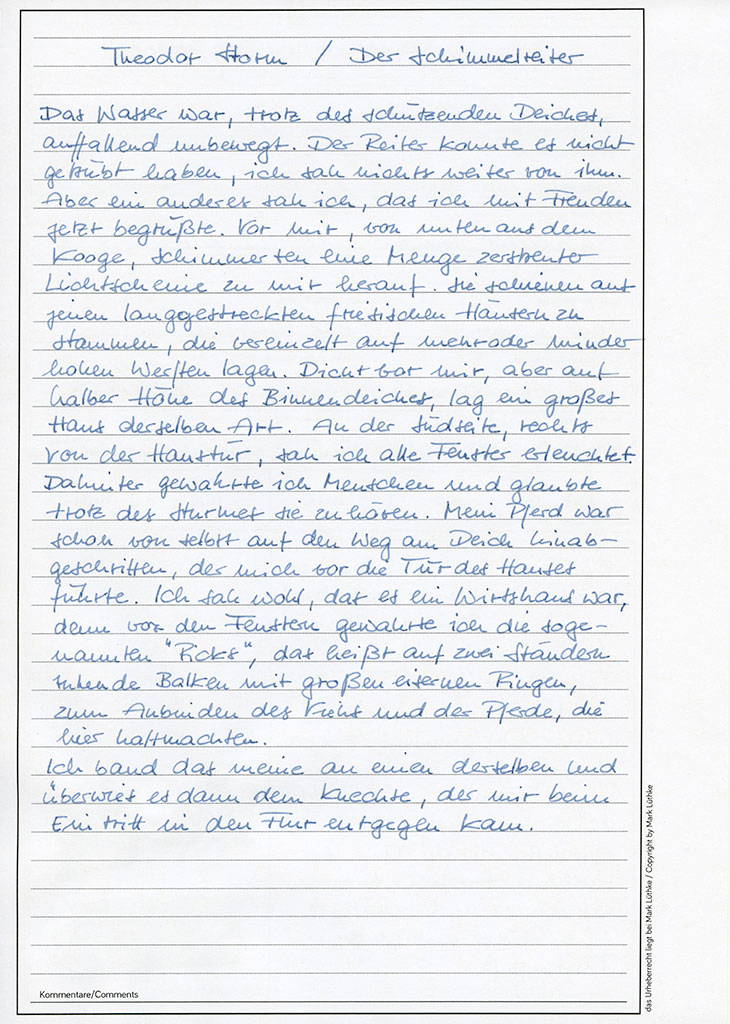 Theodor Storm / Der Schimmelreiter
Das Wasser war, trotz des schützenden Deiches,
auffallend unbewegt. Der Reiter konnte es nicht
getrübt haben, ich sah nichts weiter von ihm.
Aber ein anderes sah ich, das ich mit Freuden
jetzt begrüßte. Vor mir, von unten aus dem
Kooge, schimmerten eine Menge zerstreuter
Lichtscheine zu mir herauf. Sie schienen aus
jenen langgestreckten friesischen Häusern zu
stammen, die vereinzelt auf mehr oder minder
hohen Werften lagen. Dicht vor mir, aber auf
halber Höhe des Binnendeiches, lag ein großes
Haus derselben Art. An der Südseite, rechts
von der Haustür, sah ich alle Fenster erleuchtet.
Dahinter gewahrte ich Menschen und glaubte
trotz des Sturmes sie zu hören. Mein Pferd war
schon von selbst auf den Weg am Deich hinab-
geschritten, der mich vor die Tür des Hauses
führte. Ich sah wohl, das es ein Wirtshaus war,
denn vor den Fenstern gewahrte ich die soge-
nannten "Ricks", das heißt auf zwei Ständern
ruhende Balken mit großen eisernen Ringen,
zum Anbinden des Viehs und der Pferde, die
hier haltmachten.
Ich band das meine an einen derselben und
überwies es dann dem Knechte, der mir beim
Eintritt in den Flur entgegen kam.
Kommentare/Comments
das Urheberrecht liegt bei Mark Lüthke / Copyright by Mark Lüthke